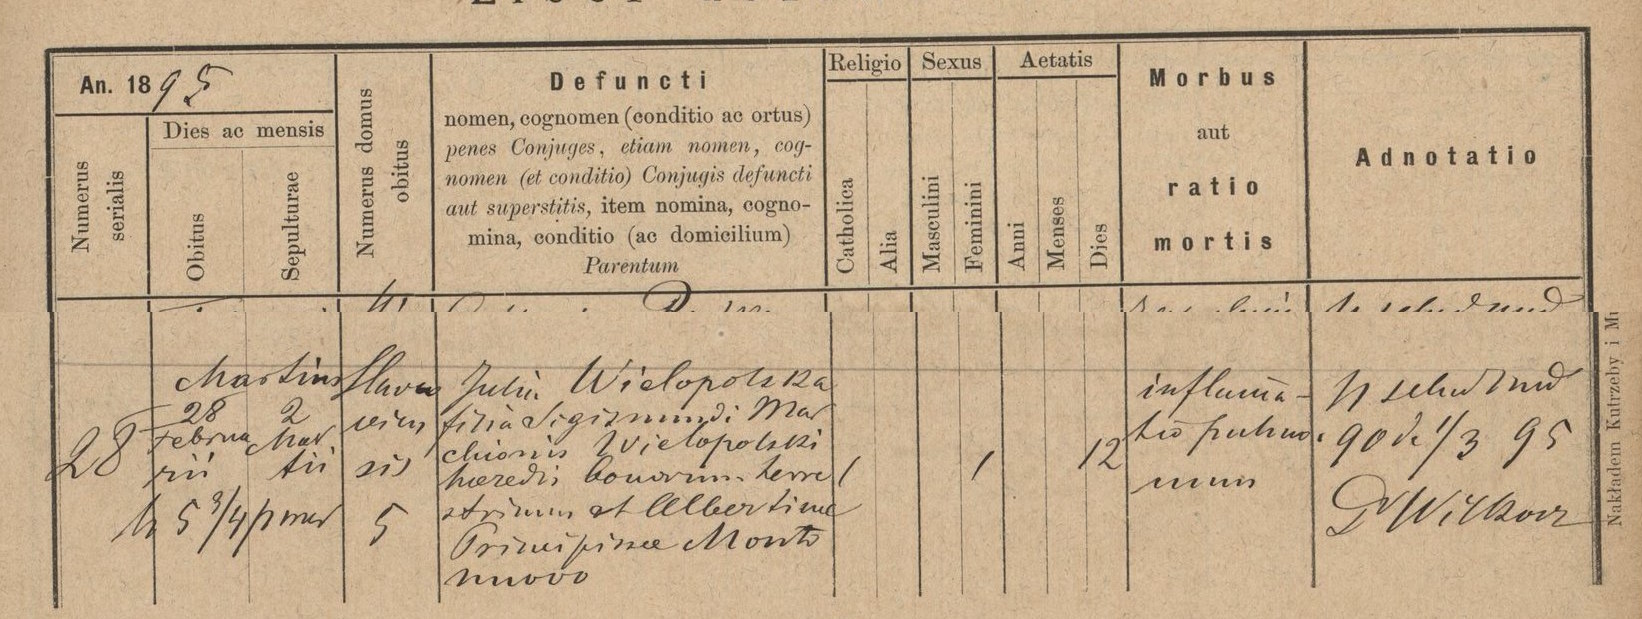 An. 1895
Numerus serialis
Dies ac mensis
Obitus
Sepulturae
Numerus domus obitus
Defuncti
nomen, cognomen (conditio ac ortus)
penes Conjuges, etiam nomen, cog-
nomen (et conditio) Conjugis defuncti
aut superstitis, item nomina, cogno-
mina, conditio (ac domicilium)
Parentum
Religio
Catholica
Alia
Sexus
Masculini
Feminini
Aetatis
Anni
Menses
Dies
Morbus
aut
ratio
mortis
Adnotatio
Martius
28
28 2
Februa Mar
rii tii
h 5 3/4 p mer
Slavco
vien
sis
5
Julia Wielopolska
filia Sigismundi Mar
chionis Wielopolski
haeredis bonorum terre
strium et Albertinae
Principissae Monte
nuovo
1
1
12
inflama-
tio pulmo
num
90 d. 1/3 95
Dr Wilkosz
Nakładem Kutrzeby i M